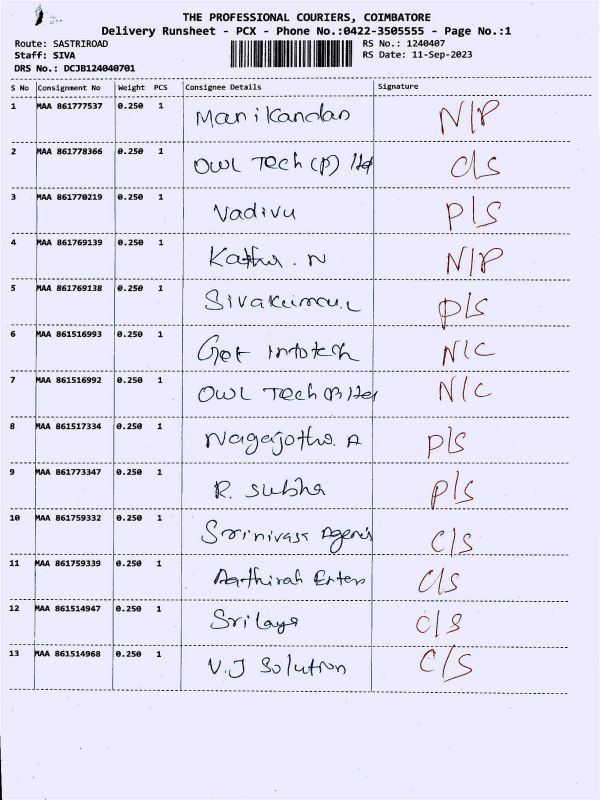 THE PROFESSIONAL COURIERS, COIMBATORE
Delivery Runsheet - PCX - Phone No.:0422-3505555 - Page No.:1
Route: SASTRIROAD RS No.: 1240407
Staff: SIVA RS Date: 11-Sep-2023
DRS No.: DCJB124040701
S No Consignment No Weight PCS Consignee Details Signature
1 MAA 861777537 0.250 1 Manikandan N/P
2 MAA 861778366 0.250 1 OWL Tech (P) ltd C/S
3 MAA 861770219 0.250 1 Vadivu P/S
4 MAA 861769139 0.250 1 N N/P
5 MAA 861769138 0.250 1 P/S
6 MAA 861516993 0.250 1 Infotech N/C
7 MAA 861516992 0.250 1 OWL Tech (P) N/C
8 MAA 861517334 0.250 1 A P/S
9 MAA 861773347 0.250 1 R. Subha P/S
10 MAA 861759332 0.250 1 C/S
11 MAA 861759339 0.250 1 Aathirah C/S
12 MAA 861514947 0.250 1 Srilaya C/S
13 MAA 861514968 0.250 1 V.J Solution C/S